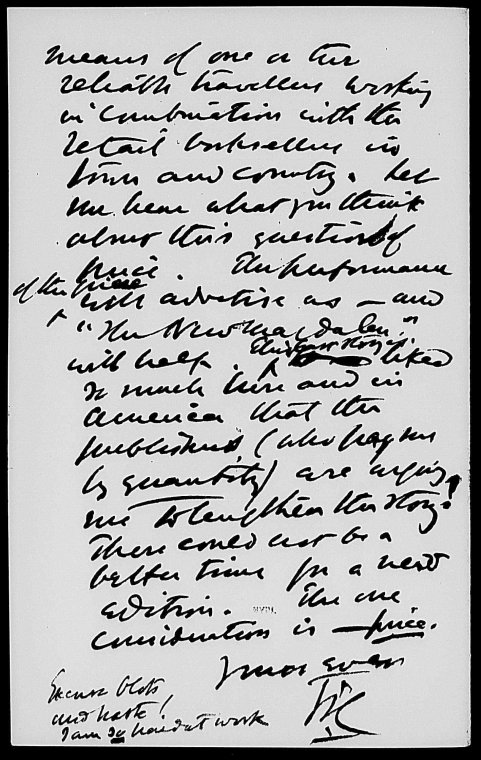 means of one or two
reliable travellers working
in combination with the
retail booksellers in
town and country. Let
me hear what you think
about this question of
price. The performance
of the piece
will advertise us — and
"The New Magdalen,"
will help. This last story is liked
so much here and in
America that the
publishers (who pay me
by quantity) are urging
me to lengthen the story!
There could not be a
better time for a new
edition. The one
consideration is — price.
Yours ever
WC
Excuse blots
and haste!
I am so hard at work